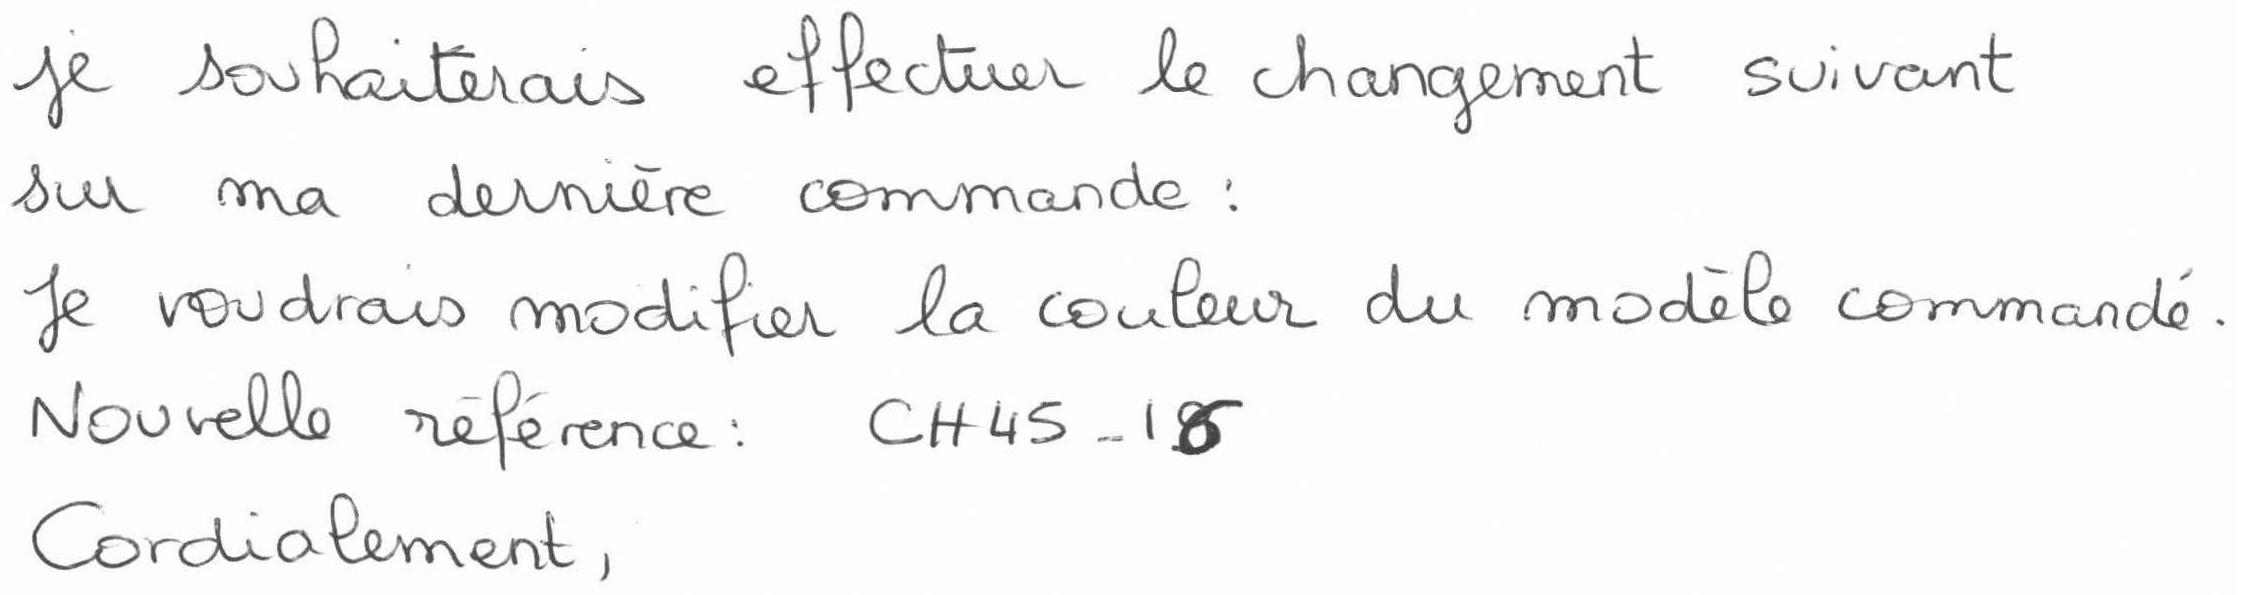 je souhaiterais effectuer le changement suivant
sur ma dernière commande :
Je voudrais modifier la couleur du modèle commandé.
Nouvelle référence :
Cordialement,